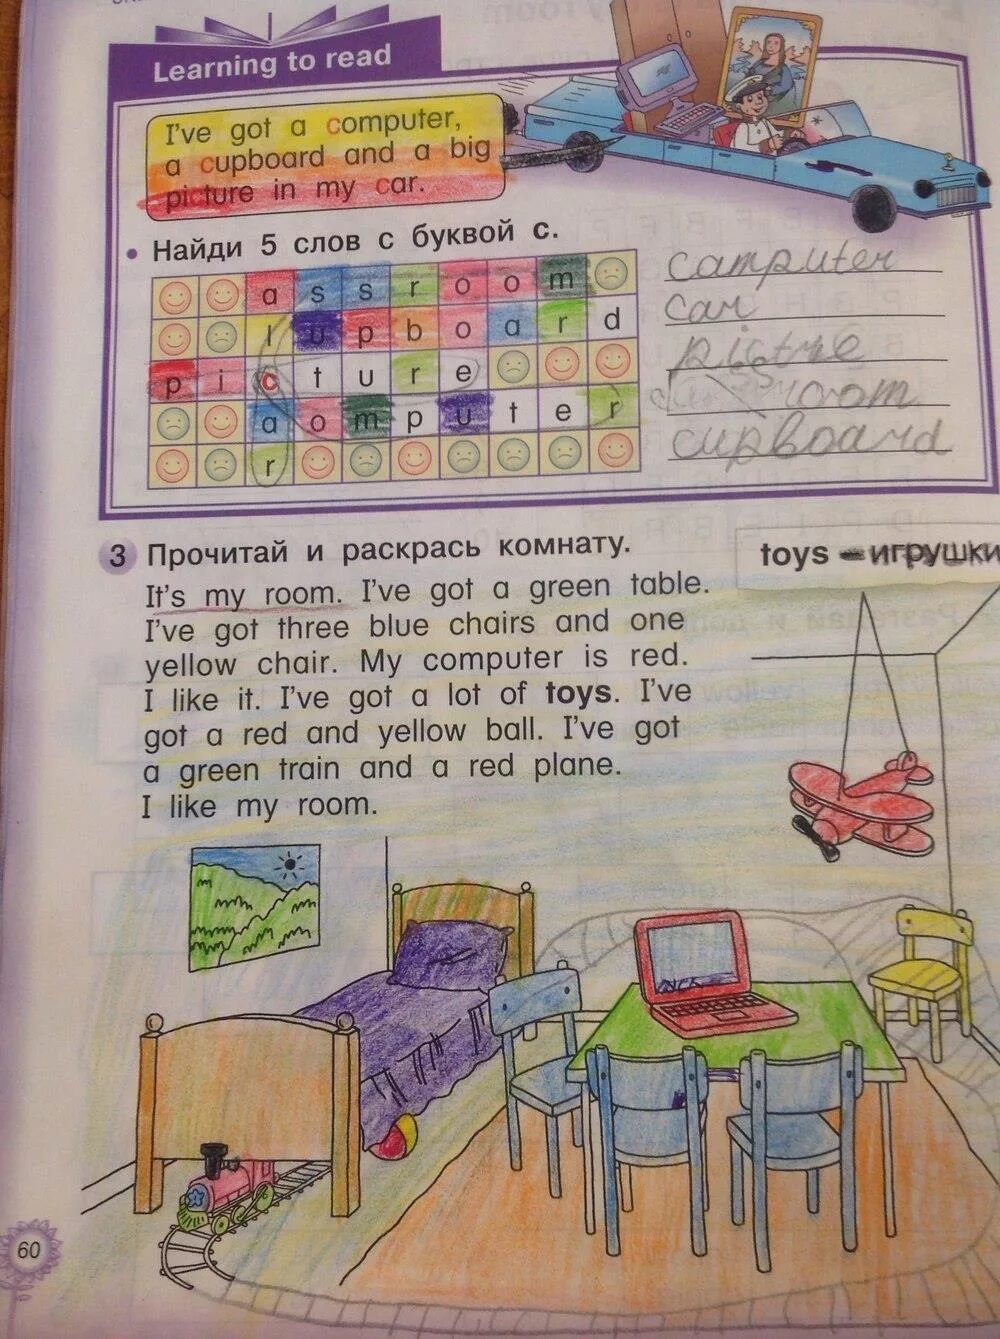 Learning to read
I've got a computer,
a cupboard and a big
picture in my car.
• Найди 5 слов с буквой с.
a s s r o o m
l u p b o a r d
p i c t u r e
a o m p u t e r
r
computer
car
pictre
room
cupboard
3 Прочитай и раскрась комнату.
toys – игрушки
It's my room. I've got a green table.
I've got three blue chairs and one
yellow chair. My computer is red.
I like it. I've got a lot of toys. I've
got a red and yellow ball. I've got
a green train and a red plane.
I like my room.
60